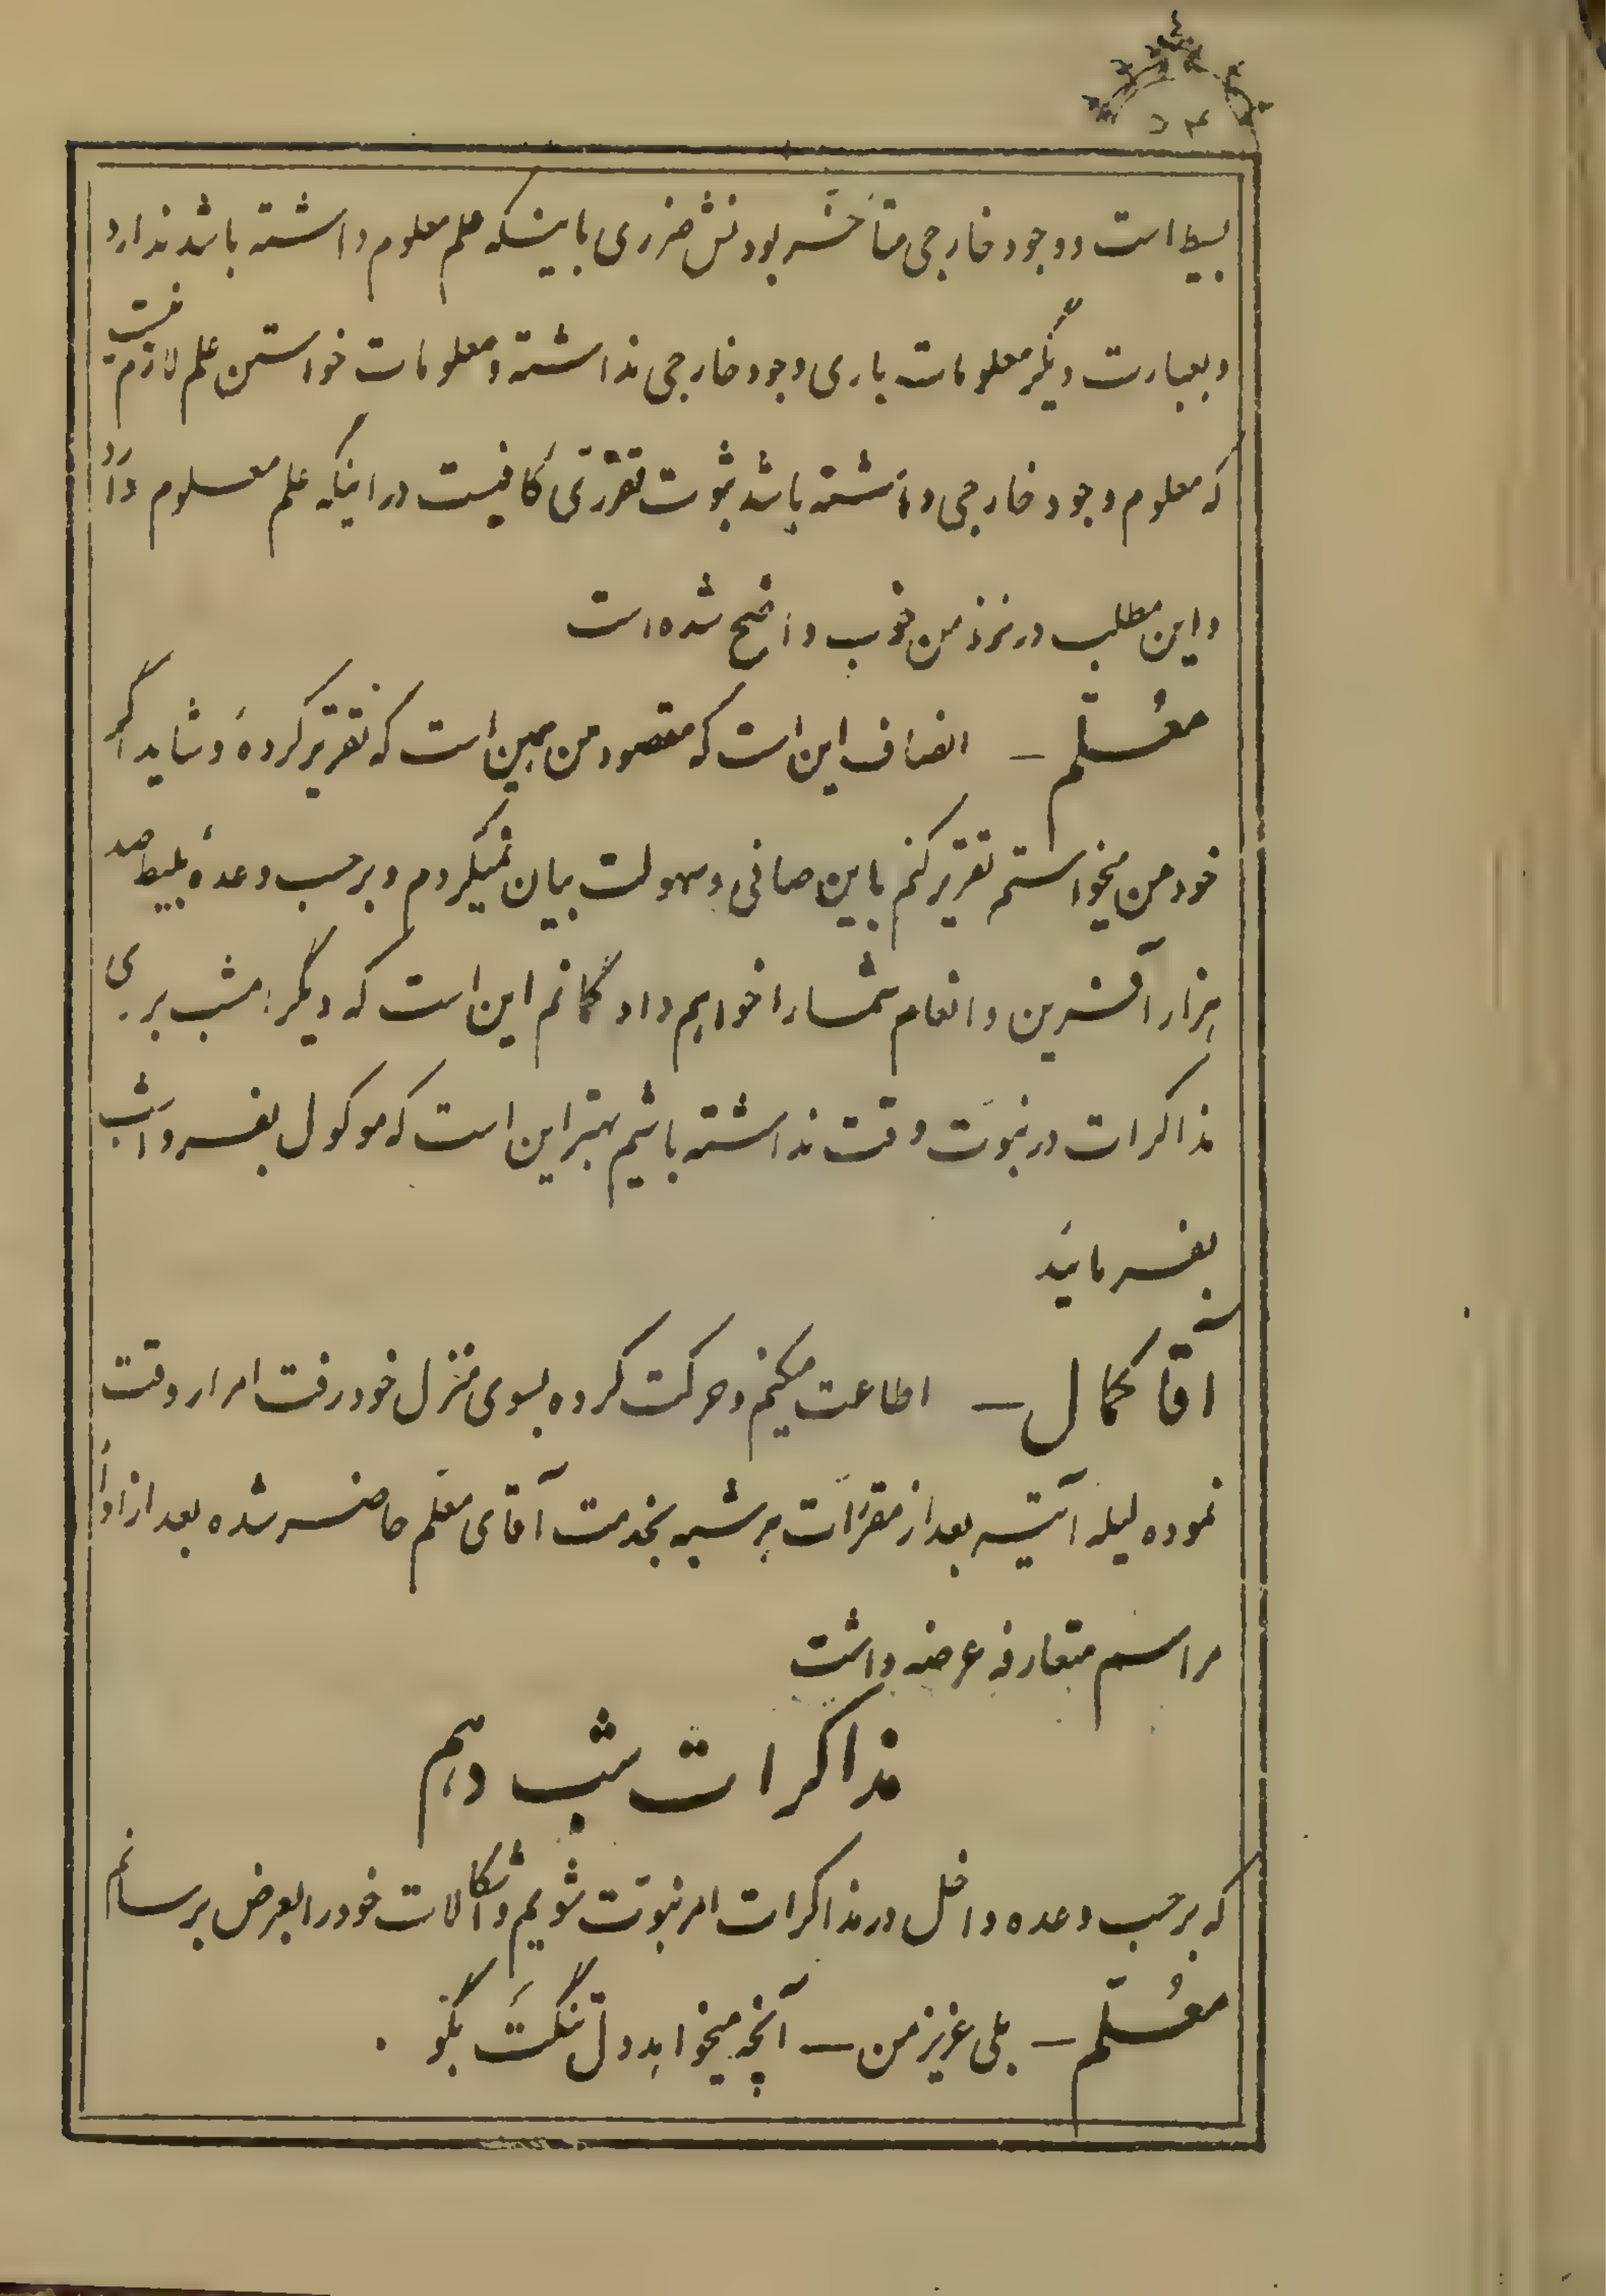 ۵۴
بسیط است و وجود خارجی متأخر بودنش ضرری باینکه علم معلوم داشته باشد ندارد
و بعبارت دیگر معلومات باری وجود خارجی نداشته و معلومات خواستن علم لازم نیست
که معلوم وجود خارجی داشته باشد ثبوت تقرّری کافیست در اینکه علم معلوم دارد
و این مطلب در نزد من خوب واضح شده است
معُلّم – انصاف این است که مقصود من همین است که تقریر کردهٔ و شاید اگر
خود من میخواستم تقریر کنم باین صافی و سهولت بیان نمیکردم و برحسب وعدهٔ بلیط صد
هزار آفرین و انعام شما را خواهم داد گمانم این است که دیگر امشب برای
مذاکرات در نبوّت وقت نداشته باشیم بهتر این است که موکول بفردا شب
بفرمائید
آقا کمال – اطاعت میکنم و حرکت کرده بسوی منزل خود رفت امرار وقت
نموده لیله آتیه بعد از مقرّرات هر شبه بخدمت آقای معلّم حاضر شده بعد از اداءِ
مراسم متعارفه عرضه داشت
مذاکرات شب دهم
که برحسب وعده داخل در مذاکرات امر نبوّت شویم و اشکالات خود را بعرض برسانم
معُلّم – بلی عزیز من – آنچه میخواهد دل تنگت بگو .